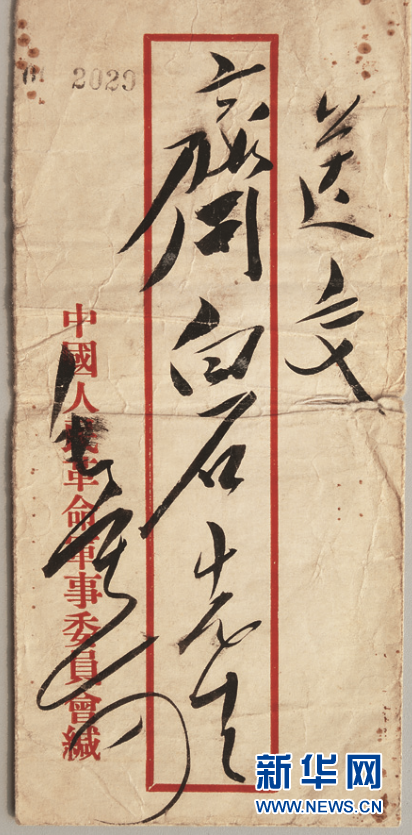 送交
齊白石先生
中國人民革命軍事委員會緘
新华网
WWW.NEWS.CN